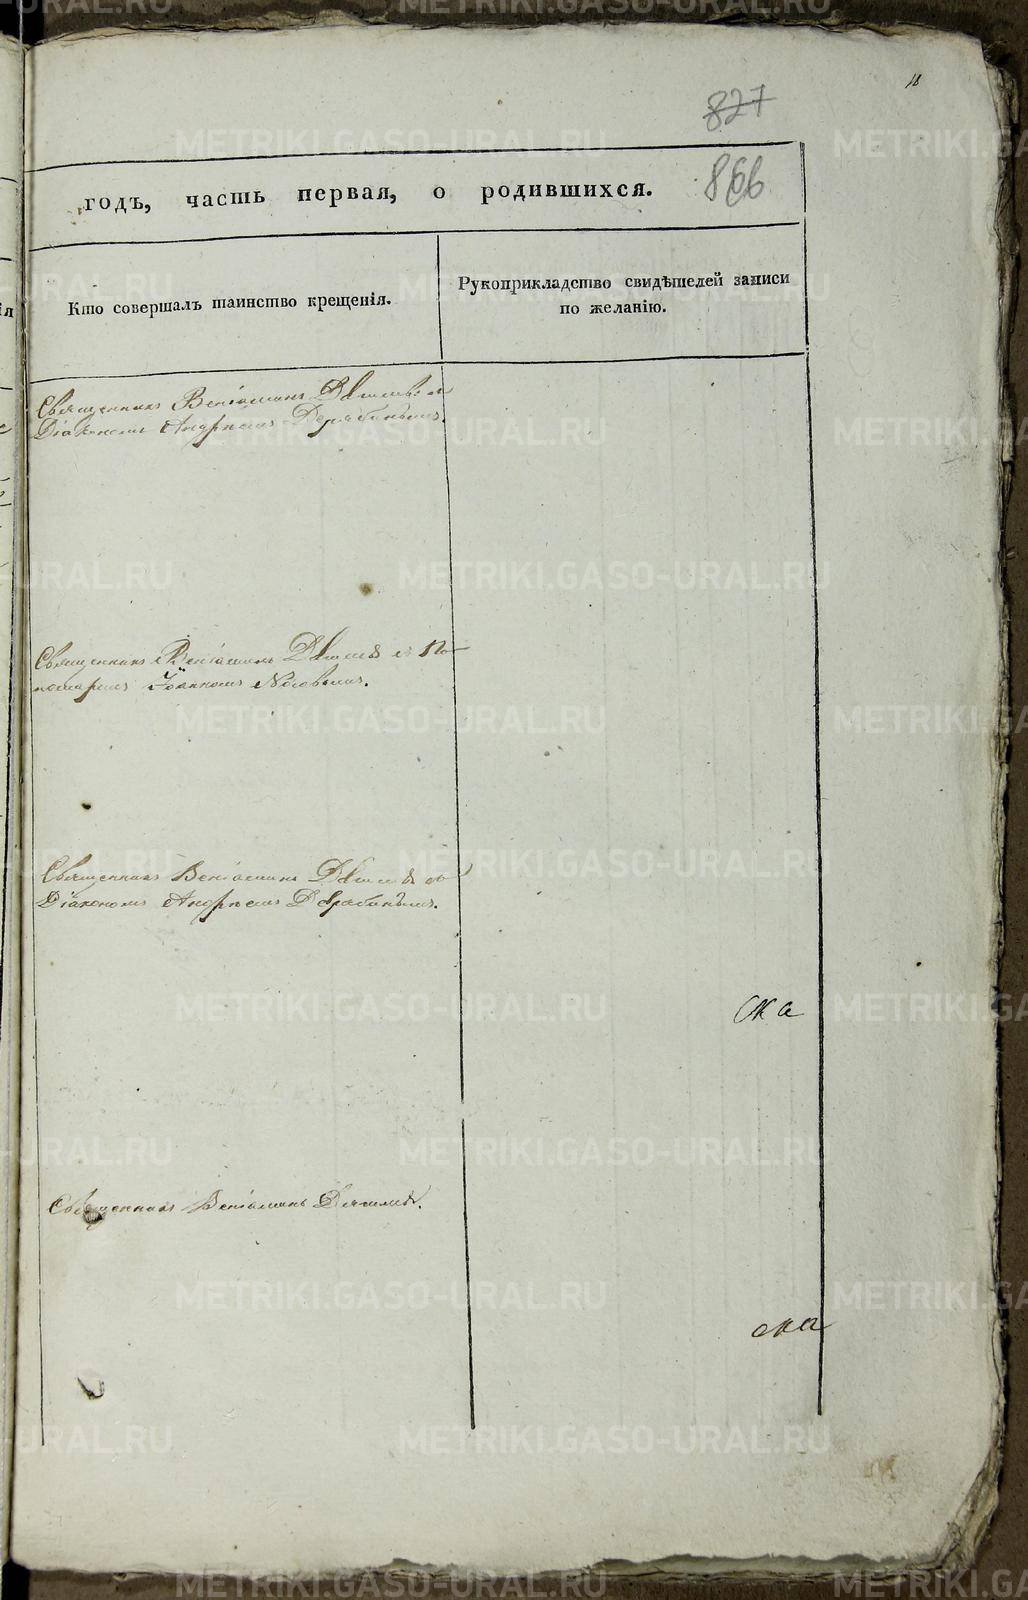 827
866
годъ, часть первая, о родившихся.
Кто совершалъ таинство крещенія.
Рукоприкладство свидѣтелей записи
по желанію.
Священникъ Веніаминъ съ
Діакономъ Андреемъ Дерябинымъ.
Священникъ Веніаминъ съ По-
номаремъ Іоанномъ Носовымъ.
Священникъ Веніаминъ съ
Діакономъ Андреемъ Дерябинымъ.
Священникъ Веніаминъ
METRIKI.GASO-URAL.RU